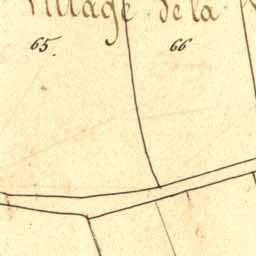 Village de la
65. 66